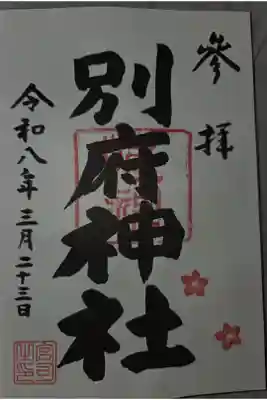 參拝
別府神社
令和八年三月二十三日